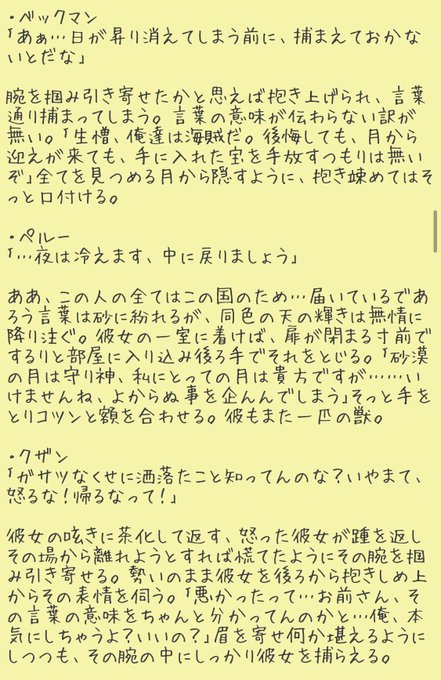 ・ベックマン
「あぁ…日が昇り消えてしまう前に、捕まえておかな
いとだな」
腕を掴み引き寄せたかと思えば抱き上げられ、言葉
通り捕まってしまう。言葉の意味が伝わらない訳が
無い。「生憎、俺達は海賊だ。後悔しても、月から
迎えが来ても、手に入れた宝を手放すつもりは無い
ぞ」全てを見つめる月から隠すように、抱き竦めてはそ
っと口付ける。
・ペルー
「…夜は冷えます、中に戻りましょう」
ああ、この人の全てはこの国のため…届いているであ
ろう言葉は砂に紛れるが、同色の天の輝きは無情に
降り注ぐ。彼女の一室に着けば、扉が閉まる寸前で
するりと部屋に入り込み後ろ手でそれをとじる。「砂漠
の月は守り神、私にとっての月は貴方ですが……い
けませんね、よからぬ事を企んんでしまう」そっと手を
とりコツンと額を合わせる。彼もまた一匹の獣。
・クザン
「ガサツなくせに洒落たこと知ってんのな？いやまて、
怒るな！帰るなって！」
彼女の呟きに茶化して返す、怒った彼女が踵を返し
その場から離れようとすれば慌てたようにその腕を掴
み引き寄せる。勢いのまま彼女を後ろから抱きしめ上
からその表情を伺う。「悪かったって…お前さん、そ
の言葉の意味をちゃんと分かってんのかと…俺、本
気にしちゃうよ？いいの？」眉を寄せ何か堪えるように
しつつも、その腕の中にしっかり彼女を捕らえる。